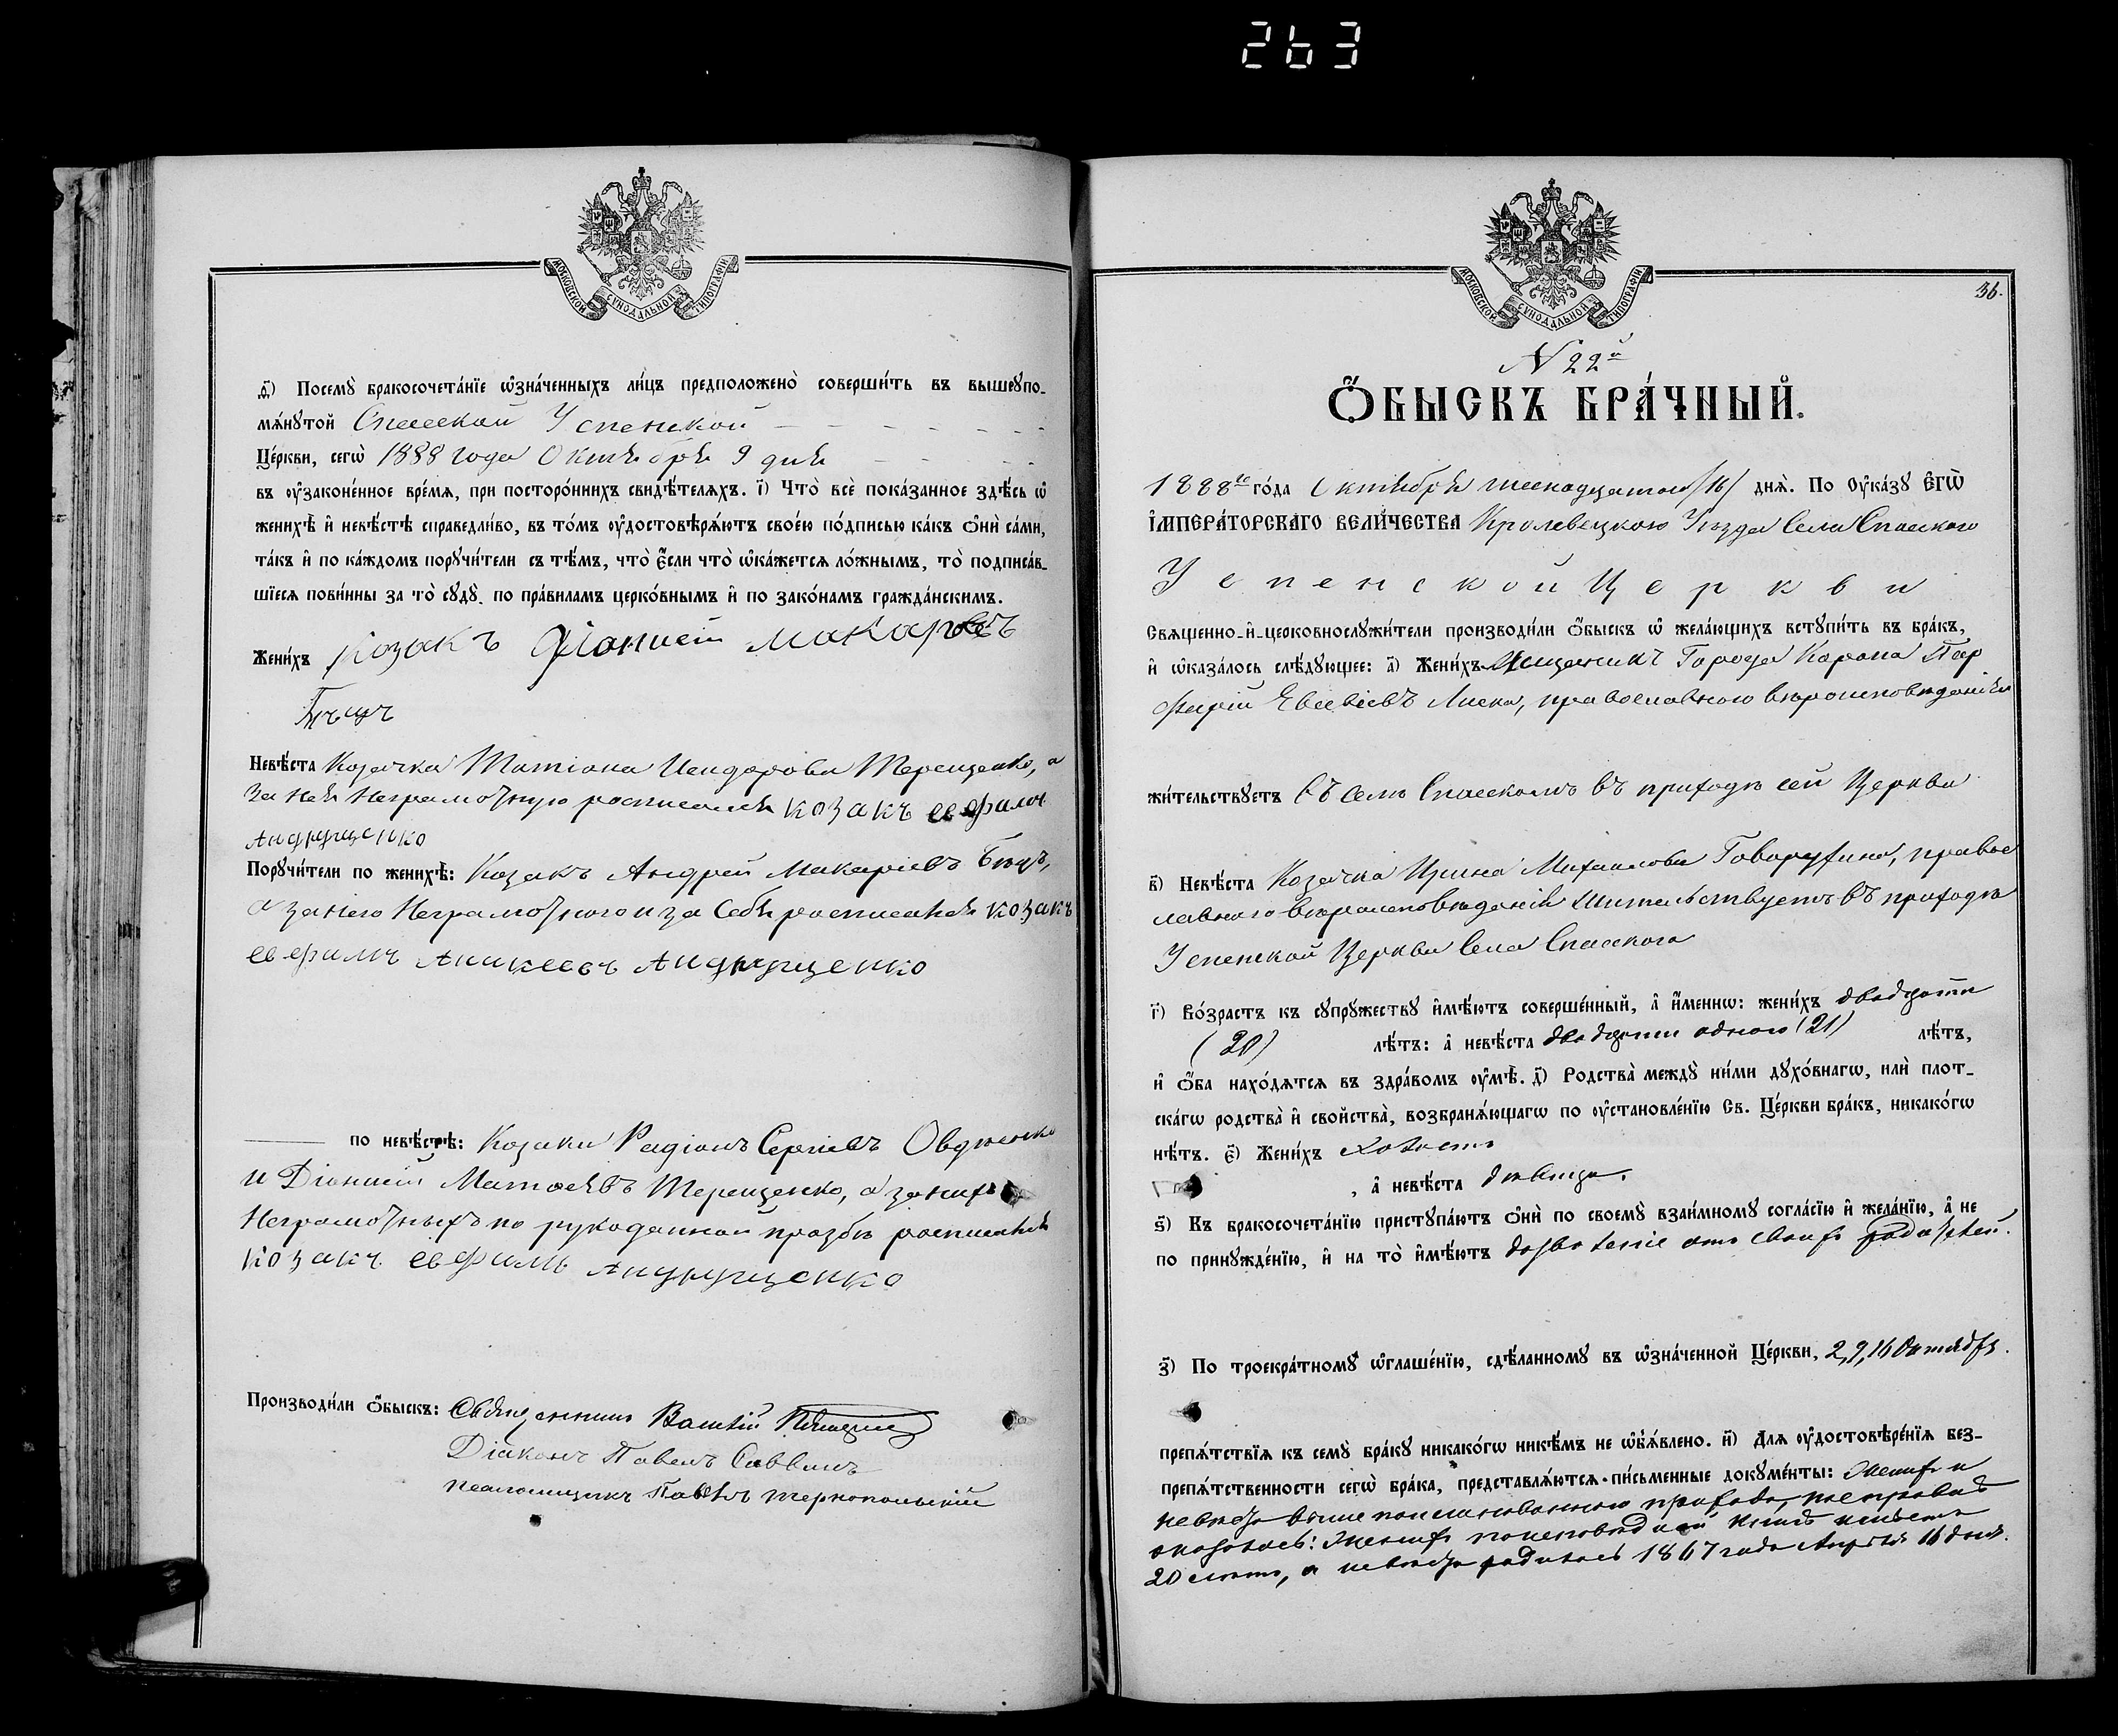 263
МОСКОВСКОЙ СѴНОДАЛЬНОЙ ТИПОГРАФІИ
д҃) Посемꙋ̀ бракосочета́нїе ѡ҆зна́ченныхъ ли́цъ предположено̀ соверши́ть въ вышеꙋпо-
мѧ́нꙋтой Спасской Успенской
Це́ркви, сегѡ̀ 1888 года Октября 9 дня
въ ᲂу҆законе́нное вре́мѧ, при посторо́ннихъ свидѣ́телѧхъ. і҃) Что̀ всѐ пока́занное здѣ́сь ѡ҆
женихѣ̀ и҆ невѣ́стѣ справедли́во, въ то́мъ ᲂу҆достовѣрѧ́ютъ свое́ю по́дписью ка́къ ѻ҆нѝ са́ми,
та́къ и҆ по ка́ждомъ порꙋчи́тели съ тѣ́мъ, что̀ є҆́сли что̀ ѡ҆ка́жетсѧ ло́жнымъ, то̀ подписа́в-
шїесѧ пови́нны за то̀ сꙋдꙋ̀ по пра́виламъ церко́внымъ и҆ по зако́намъ гражда́нскимъ.
Жени́хъ козакъ Діонисій Макаровъ
Бѣцъ
Невѣ́ста Козачка Татіана Исидорова Терещенко, а
за нея неграмотную росписался козакъ Евфимъ
Андрущенко
Порꙋчи́тели по женихѣ̀: Козакъ Андрей Макаріевъ Бѣцъ,
а за него неграмотного и за себя росписался козакъ
Евфимъ Аникеевъ Андрущенко
по невѣ́стѣ: Козаки Радіонъ Сергіевъ Овдѣенко
и Діонисій Матѳеевъ Терещенко, а за нихъ
неграмотныхъ по рукоданной прозбѣ росписался
козакъ Евфимъ Андрущенко
Производи́ли ѻ҆́быскъ: Священникъ Василій
Діаконъ Павелъ Саввинъ
псаломщикъ Павелъ Тернопольскій
МОСКОВСКОЙ СѴНОДАЛЬНОЙ ТИПОГРАФІИ
36.
N 22й
Ѻ҆́БЫСКЪ БРА́ЧНЫЙ.
1888го го́да Октября шеснадцатого /16/ днѧ̀. По Оу҆ка́зꙋ Є҆гѡ̀
І҆мпера́торскагѡ вели́чества Кролевецкого Уѣзда Села Спаского
Успенской Церкви
Свѧщенно-и҆-церковнослꙋжи́тели производи́ли ѻ҆́быскъ ѡ҆ жела́ющихъ встꙋпи́ть въ бра́къ,
и҆ ѡ҆каза́лось слѣ́дꙋющее: а҃) Жени́хъ Мещанинъ Города Коропа Пор
фирій Евсевіевъ Лиска, православного вѣроисповѣданія
жи́тельствꙋетъ въ селѣ Спасскомъ въ приходѣ сей Церкви
в҃) Невѣ́ста Козачка Ирина Михаилова Говорухина, правос
лавного вѣроисповѣданія жительствуетъ въ приходѣ
Успенской Церкви Села Спасского
г҃) Во́зрастъ къ сꙋпрꙋжествꙋ и҆мѣ́ютъ соверше́нный, а҆ и҆́меннѡ: жени́хъ двадцати
(20) лѣ́тъ: а҆ невѣ́ста двадцати одного (21) лѣ́тъ,
и҆ ѻ҆́ба нахо́дѧтсѧ въ здра́вомъ ᲂу҆мѣ̀. д҃) Родства̀ междꙋ̀ ни́ми дꙋхо́внагѡ, илѝ плот-
скагѡ родства̀ и҆ свойства̀, возбранѧ́ющагѡ по ᲂу҆становле́нїю Св. Це́ркви бра́къ, никако́гѡ
нѣ́тъ. є҃) Жени́хъ холостъ
, а҆ невѣ́ста дѣвица.
ѕ҃) Къ бракосочета́нїю пристꙋпа́ютъ ѻ҆нѝ по своемꙋ̀ взаи́мномꙋ согла́сїю и҆ жела́нїю, а҆ не
по принꙋжде́нїю, и҆ на то̀ и҆мѣ́ютъ дозволеніе отъ своихъ родителей.
з҃) По троекра́тномꙋ ѡ҆глаше́нїю, сдѣ́ланномꙋ въ ѡ҆зна́ченной Це́ркви, 2, 9, 16 Октября.
препѧ́тствїѧ къ семꙋ̀ бра́кꙋ никако́гѡ никѣ́мъ не ѡ҆б̾ѧ́влено. и҃) Длѧ ᲂу҆достовѣре́нїѧ без-
препѧ́тственности сегѡ̀ бра́ка, представлѧ́ютсѧ пи́сьменные докꙋме́нты: Женихъ и
невѣста вышепоименованного прихода,
оказалось: Женихъ по исповѣдной книгѣ имѣетъ
20 лѣтъ, а невѣста родилась 1867 года Апрѣля 16 дня.